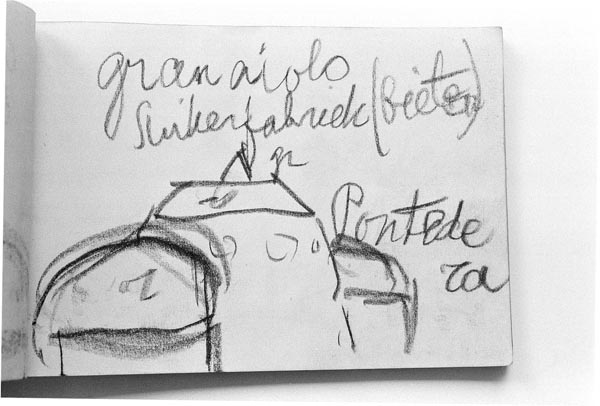 granaiolo
Suikerfabriek (bieten)
gr
Pontede
ra